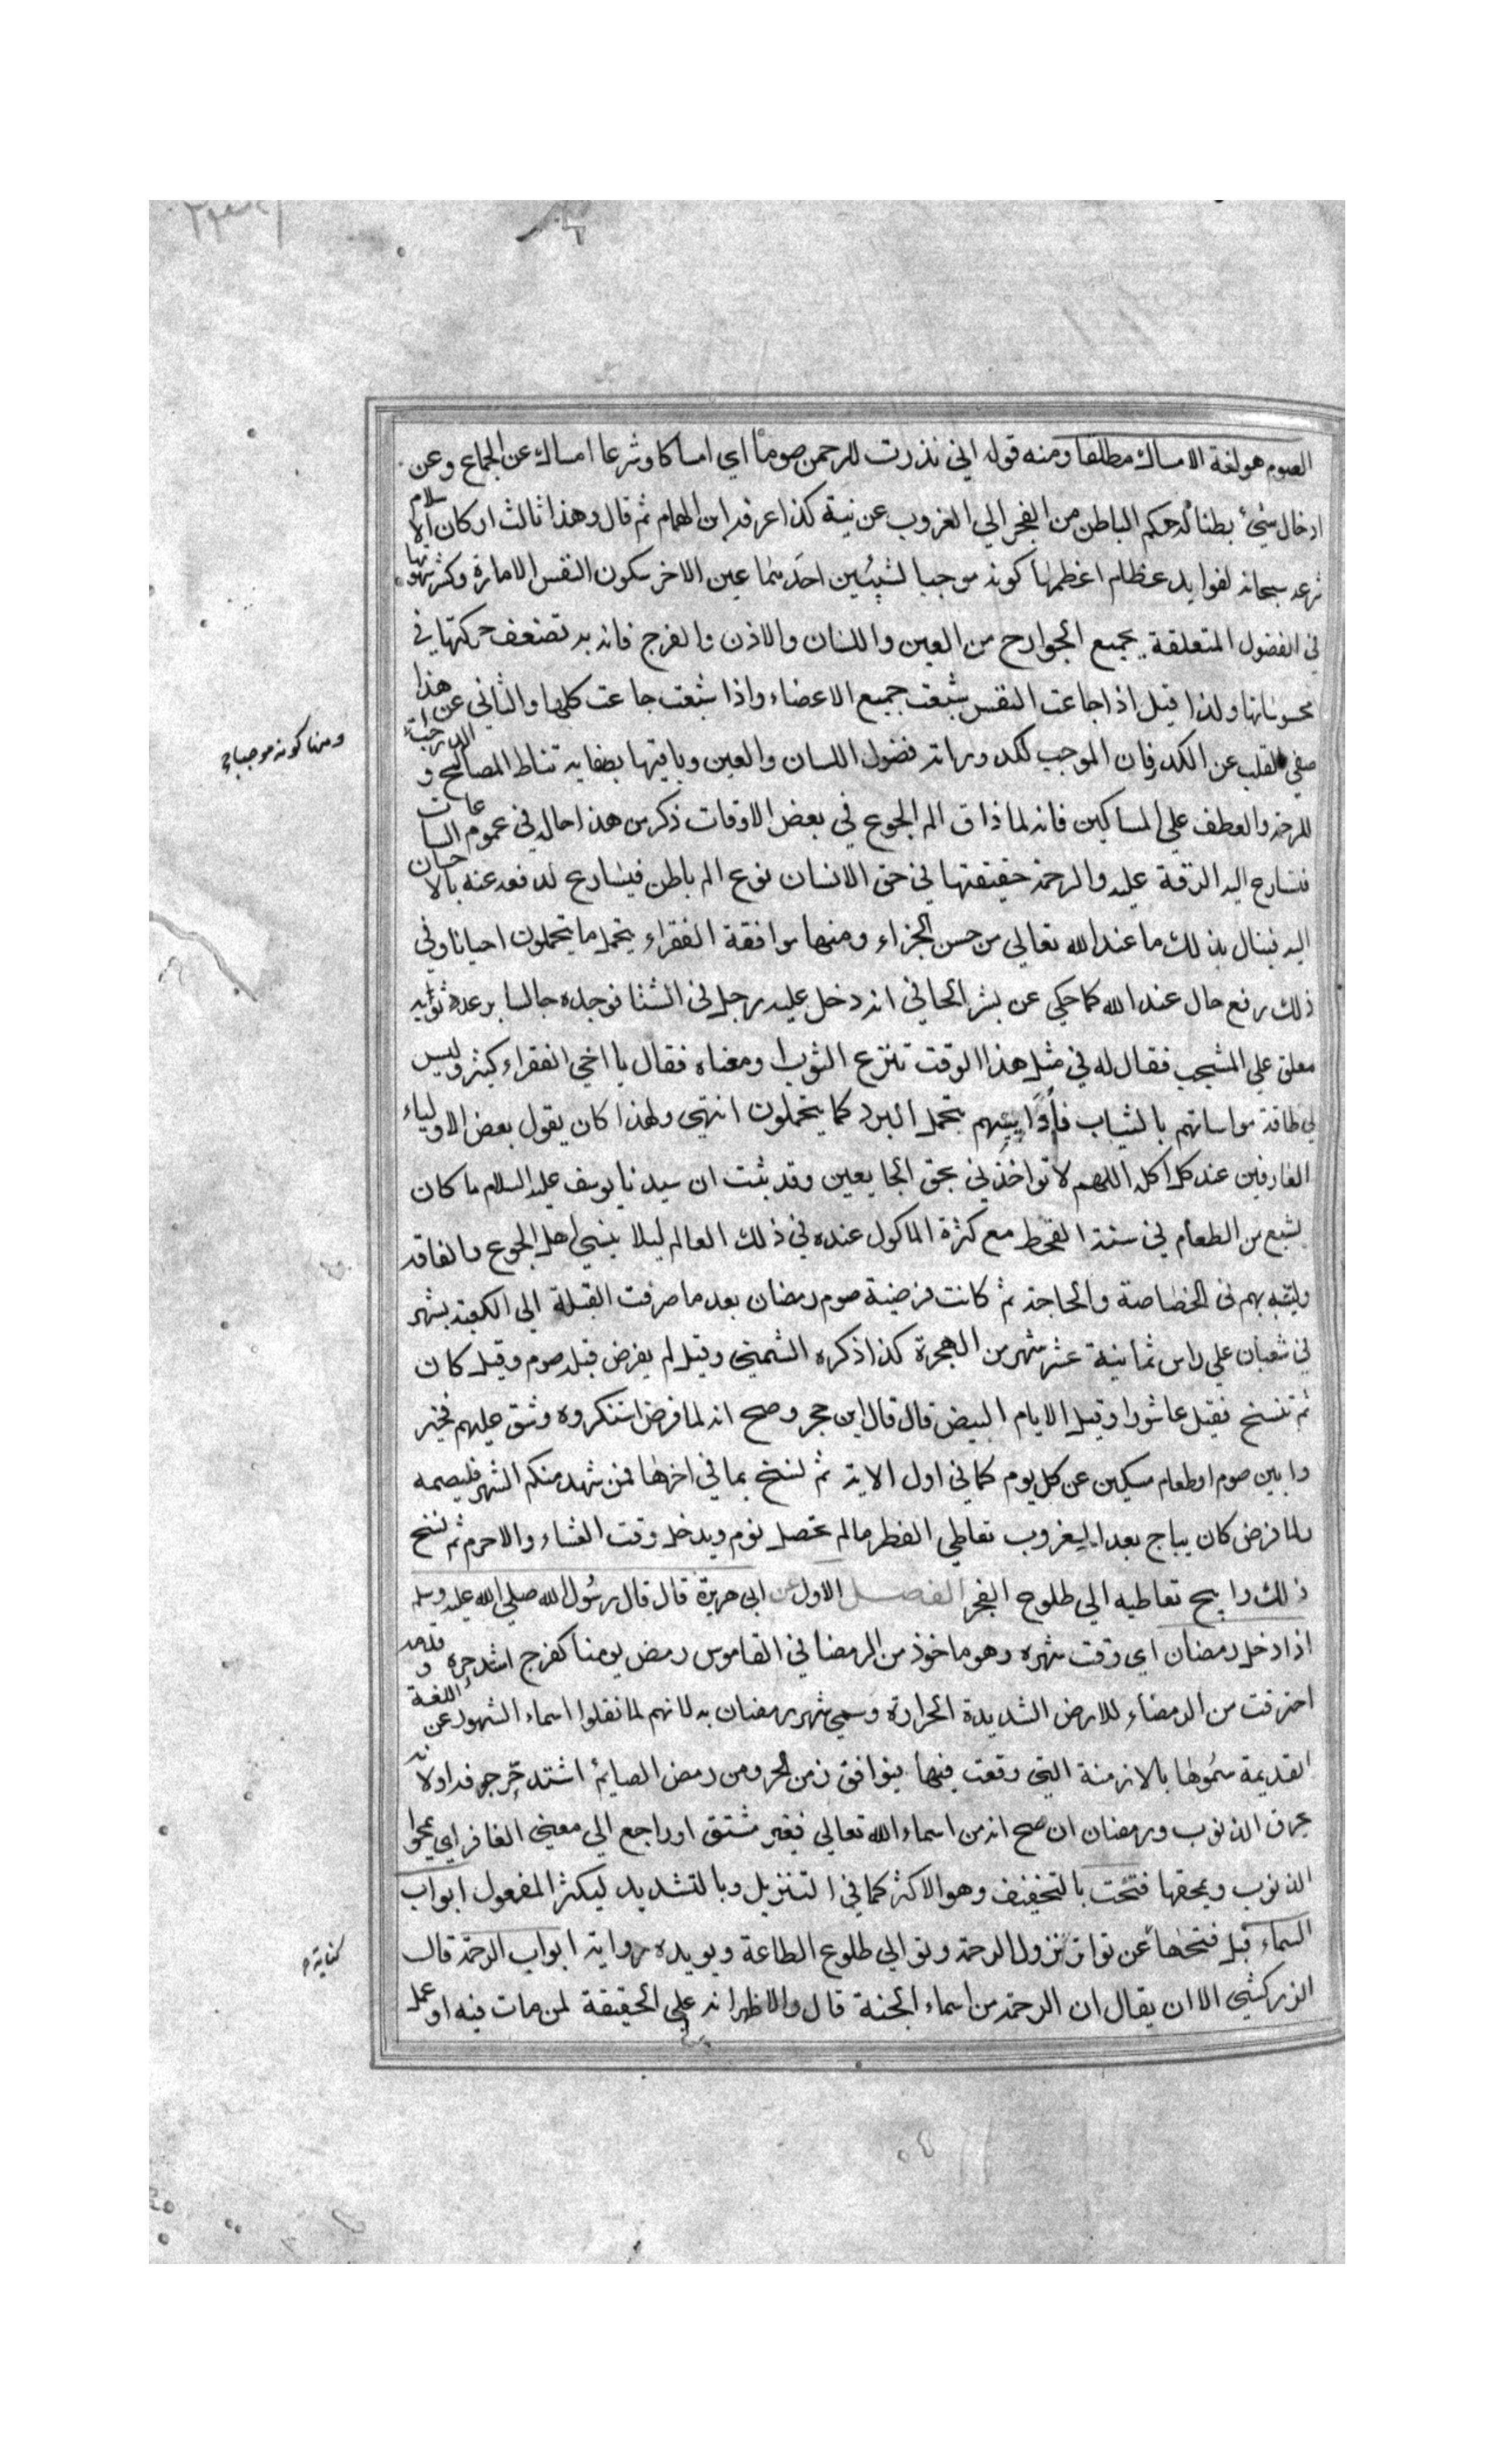 الصوم هو لغة الامساك مطلقا ومنه قوله اني نذرت للرحمن صوما اي امساكا وشرعا امساك عن الجماع وعن
ادخال شيئ بطنا له حكم الباطن من الفجر الي الغروب عن نية كذا عرفه ابن الهمام ثم قال وهذا ثالث اركان الاسلام
شرعه سبحانه لفوايد عظام اعظمها كونه موجبا لشيئين احدهما عين الاخر سكون النفس الامارة وكثر شهوتها
في الفضول المتعلقة بجميع الجوارح من العين واللسان والاذن والفرج فانه به تضعف حركتها في
محسوساتها ولذا قيل اذا جاعت النفس شبعت جميع الاعضاء واذا شبعت جاعت كلها والثاني عن هذا
صفي القلب عن الكدر فان الموجب لكدوراته فضول اللسان والعين وباقيها بصفايه تناط المصالح و الدرجات
ومنها كونه موجبا
للرحمة والعطف علي المساكين فانه لما ذاق الم الجوع في بعض الاوقات ذكر من هذا حاله في عموم الساعات
فتسارع اليه الرقة عليه والرحمة حقيقتها في حق الانسان نوع الم باطن فيسارع لدفعه عنه بالاحسان
اليه فينال بذلك ما عند الله تعالي من حسن الجزاء ومنها موافقة الفقراء بتحمل ما يتحملون احيانا وفي
ذلك رفع حال عند الله كما حكي عن بشر الحافي انه دخل عليه رجل في الشتا فوجده جالسا يرعد وثوبه
معلق علي المشجب فقال له في مثل هذا الوقت تنزع الثوب او معناه فقال يا اخي الفقراء كثير وليس
لي طاقة مواساتهم بالثياب فاواسيهم بتحمل البرد كما يتحملون انتهي ولهذا كان يقول بعض الاولياء
العارفين عند كل اكله اللهم لا تواخذني بحق الجايعين وقد ثبت ان سيدنا يوسف عليه السلام ما كان
يشبع من الطعام في سنة القحط مع كثرة الماكول عنده في ذلك العالم ليلا ينسي اهل الجوع والفاقة
وليتشبه بهم في الخصاصة والحاجة ثم كانت فرضية صوم رمضان بعد ما صرفت القبلة الي الكعبة بشهر
في شعبان علي راس ثمانية عشر شهر من الهجرة كذا ذكره الشمني وقيل لم يفرض قبله صوم وقيل كان
ثم نسخ فقيل عاشورا وقيل الايام البيض قال قال ابن حجر وصح انه لما فرض استنكروه وشق عليهم فخير
وا بين صوم او طعام مسكين عن كل يوم كما في اول الاية ثم نسخ بما في اخرها فمن شهد منكم الشهر فليصمه
ولما فرض كان يباح بعد الغروب تعاطي الفطر ما لم يحصل نوم ويدخل وقت العشاء والاحرم ثم نسخ
ذلك وابيح تعاطيه الي طلوع الفجر الفصل الاول عن ابي هريرة قال قال رسول الله صلي الله عليه وسلم
اذا دخل رمضان اي وقت شهره وهو ماخوذ من الرمضا في القاموس رمض يومنا كفرح اشتد حره و قدمه
احترقت من الرمضاء للارض الشديدة الحرارة وسمي شهر رمضان به لانهم لما نقلوا اسماء الشهور عن اللغة
القديمة سموها بالازمنة التي وقعت فيها فوافق زمن الحر ومن رمض الصايم اشتد حر جوفه او لانه
يحرق الذنوب ورمضان ان صح انه من اسماء الله تعالي فغير مشتق او راجع الي معني الغافر اي يمحوا
الذنوب ويمحقها فتحت بالتخفيف وهو الاكثر كما في التنزيل وبالتشديد ليكثر المفعول ابواب
السماء قيل فتحها عن تواتر نزول الرحمة وتوالي طلوع الطاعة ويويده رواية ابواب الرحمة قال
كناية
الزركشي الا ان يقال ان الرحمة من اسماء الجنة قال والاظهر انه علي الحقيقة لمن مات فيه او عمل